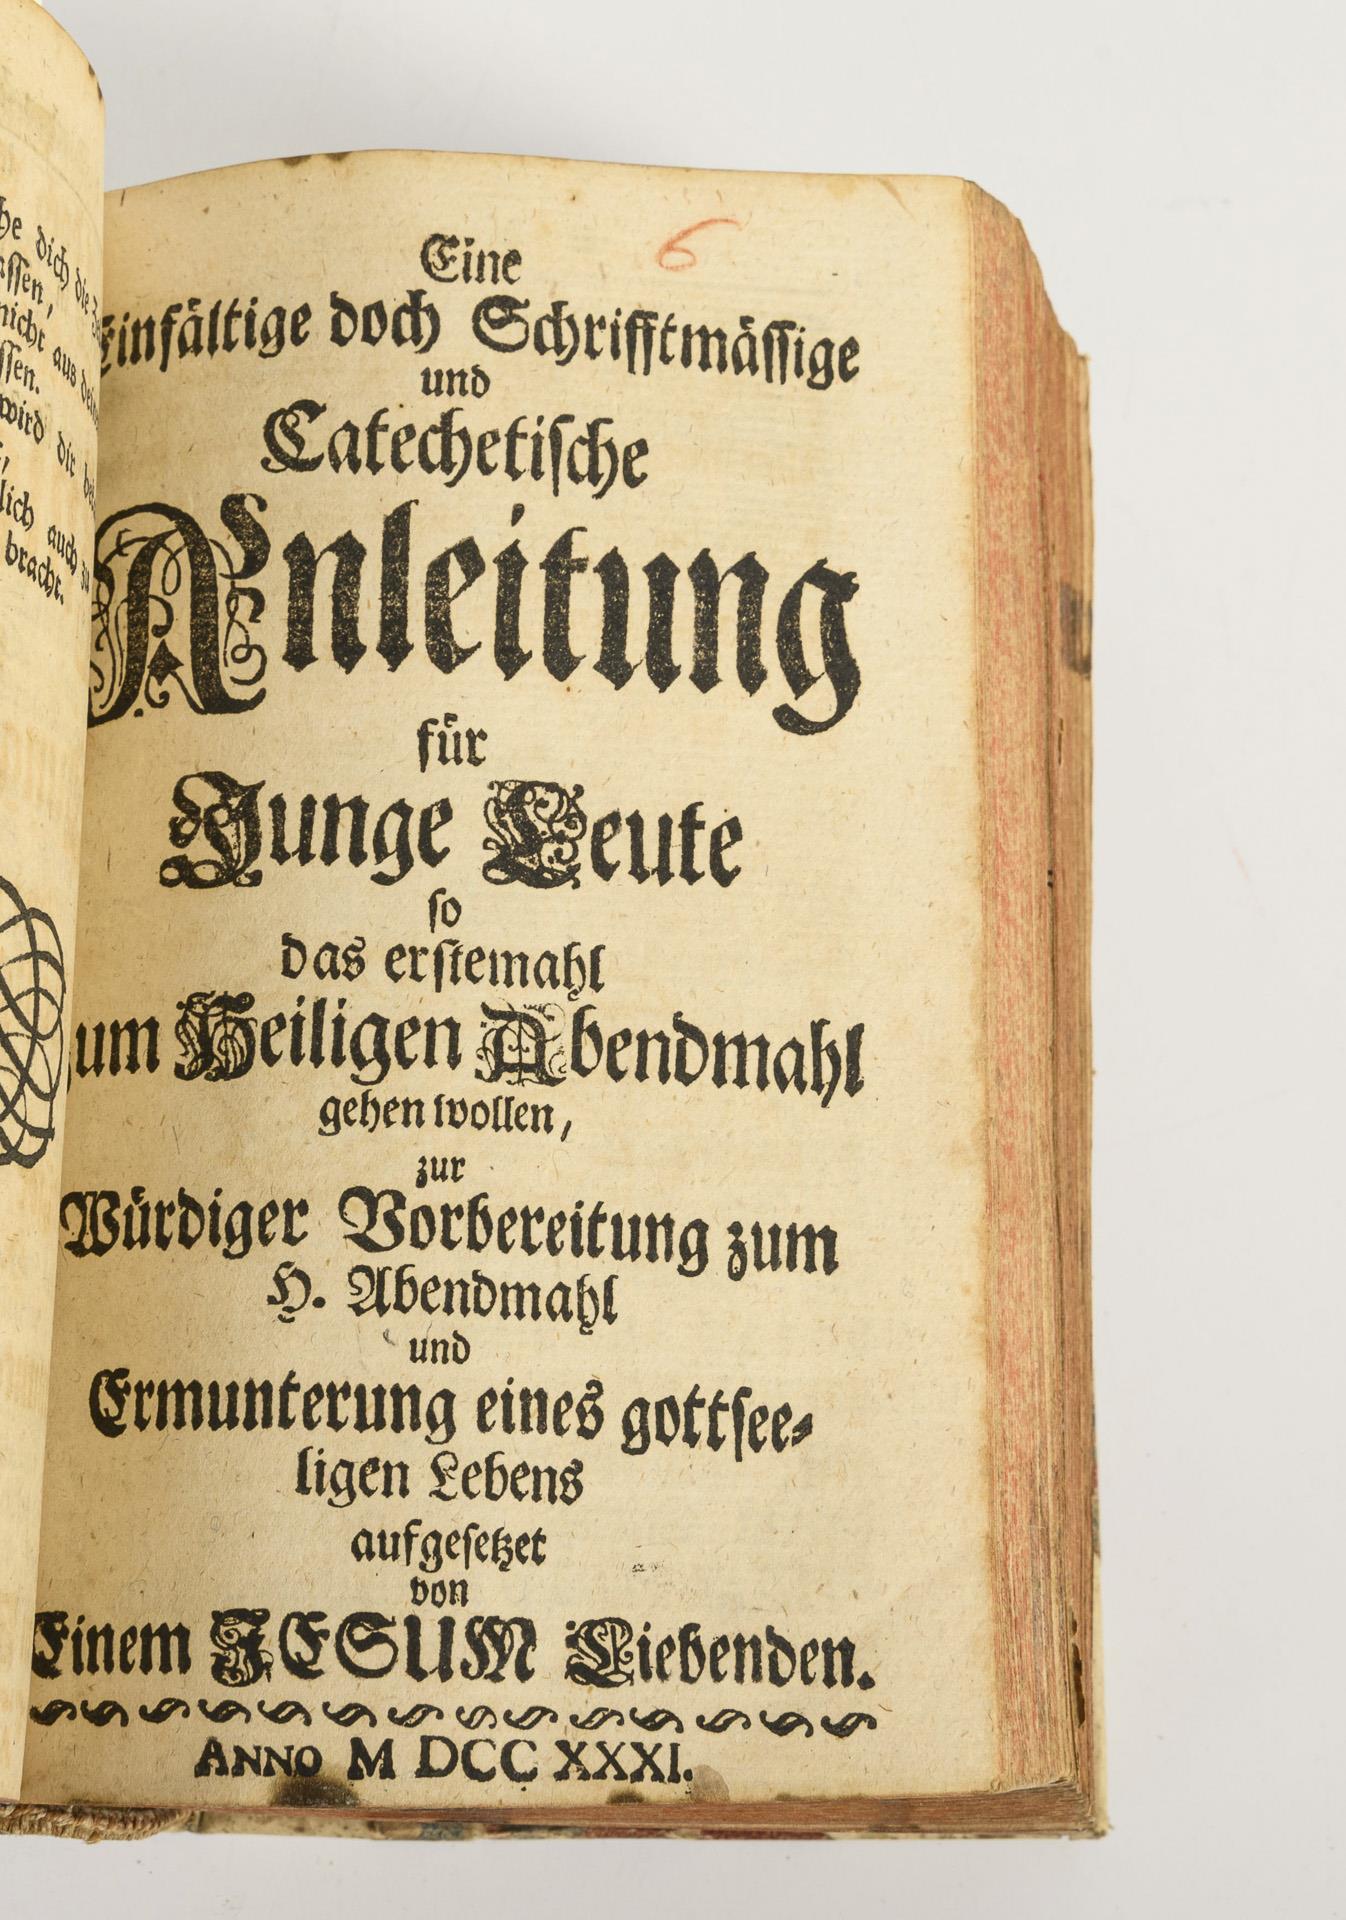 he dich die
assen,
nicht aus
ssen.
wird dir
lich auch zu
bracht.
6
Eine
Einfältige doch Schrifftmässige
und
Catechetische
Anleitung
für
Junge Leute
so
das erstemahl
zum Heiligen Abendmahl
gehen wollen,
zur
Würdiger Vorbereitung zum
H. Abendmahl
und
Ermunterung eines gottsee-
ligen Lebens
aufgesetzet
von
Einem JESUM Liebenden.
ANNO M DCC XXXI.